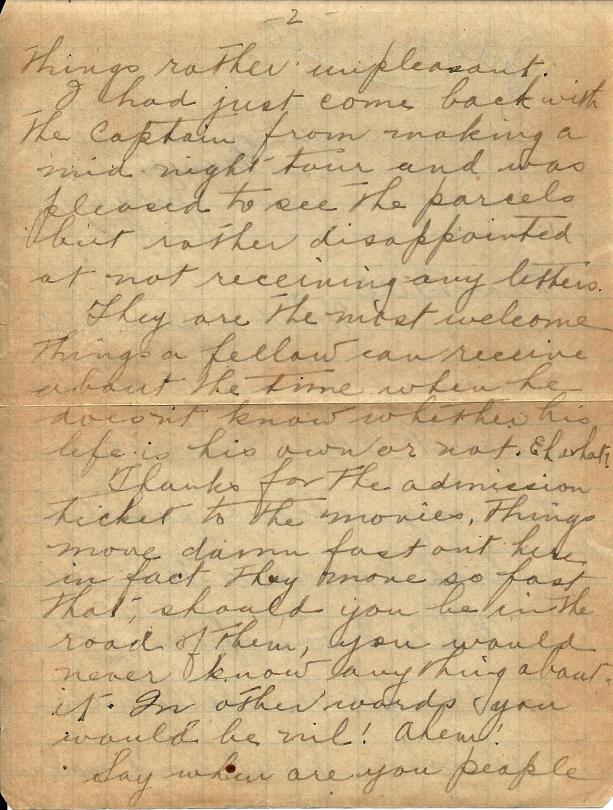 - 2 -
things rather unpleasant.
I had just come back with
the Captain from making a
mid night tour and was
pleased to see the parcels
but rather disappointed
at not receiving any letters.
They are the most welcome
things a fellow can receive
about the time when he
doesnt know whether his
life is his own or not. Eh what?
Thanks for the admission
ticket to the movies, things
move damn fast out here
in fact they move so fast
that, should you be in the
road of them, you would
never know anything about
it. In other words you
would be nil! Ahem!
Say when are you people